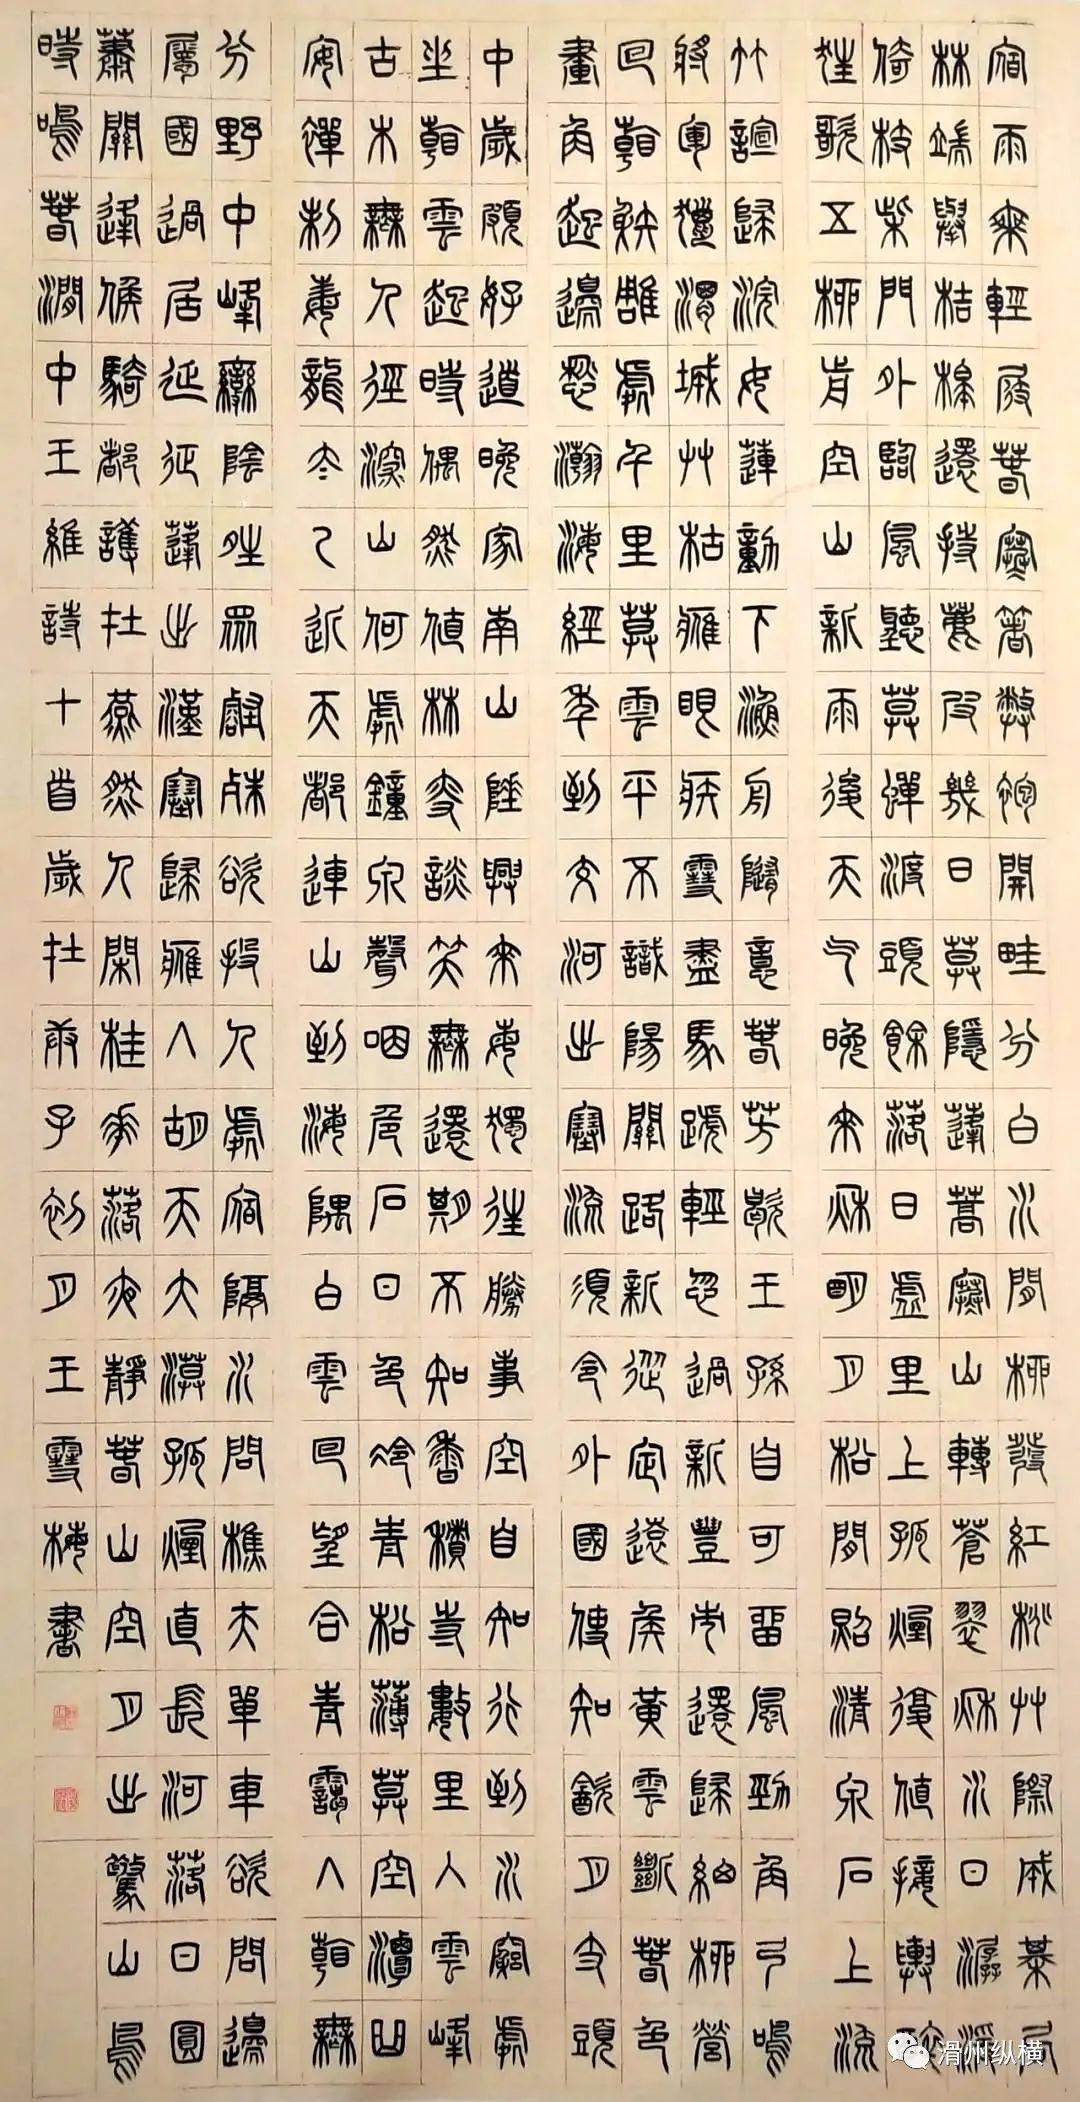 宿雨乘輕屐春寒著弊袍開畦分白水間柳發紅桃艸際成棊局
林端舉桔槔還持鹿皮几日莫隱蓬蒿寒山轉蒼翠秋水日潺湲
倚杖柴門外臨風聽莫蟬渡頭餘落日虛里上孤煙復值接輿醉
狂歌五柳前空山新雨後天气晚來秋明月松間照清泉石上流
竹諠歸浣女蓮動下漁舟隨意春芳歇王孫自可留風勁角弓鳴
將軍獵渭城艸枯鷹眼疾雪盡馬蹏輕忽過新豐市還歸細柳營
回看射雕處千里莫雲平不識陽關路新從定遠侯黃雲斷春色
畫角起邊愁瀚海經年到交河出塞流須令外國使知飲月支頭
中歲頗好道晚家南山陲興來每獨往勝事空自知行到水窮處
坐看雲起時偶然值林叟談笑無還期不知香積寺數里入雲峰
古木無人徑深山何處鐘泉聲咽危石日色冷青松薄莫空潭曲
安禪制毒龍太乙近天都連山到海隅白雲回望合青靄入看無
分野中峰變陰晴眾壑殊欲投人處宿隔水問樵夫單車欲問邊
屬國過居延征蓬出漢塞歸雁入胡天大漠孤煙直長河落日圓
蕭關逢候騎都護在燕然人閑桂花落夜靜春山空月出驚山鳥
時鳴春澗中王維詩十首歲在庚子初月王雪梅書
滑州纵横